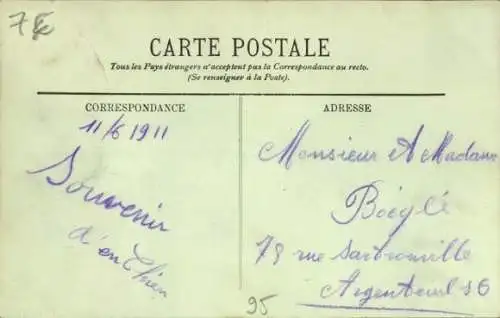 7€
CARTE POSTALE
Tous les Pays étrangers n'acceptent pas la Correspondance au recto.
(Se renseigner à la Poste).
CORRESPONDANCE
11/6 1911
Souvenir
d'enthien
ADRESSE
Monsieur et Madame
Boéglé
78 rue Sartrouville
Argenteuil S
95